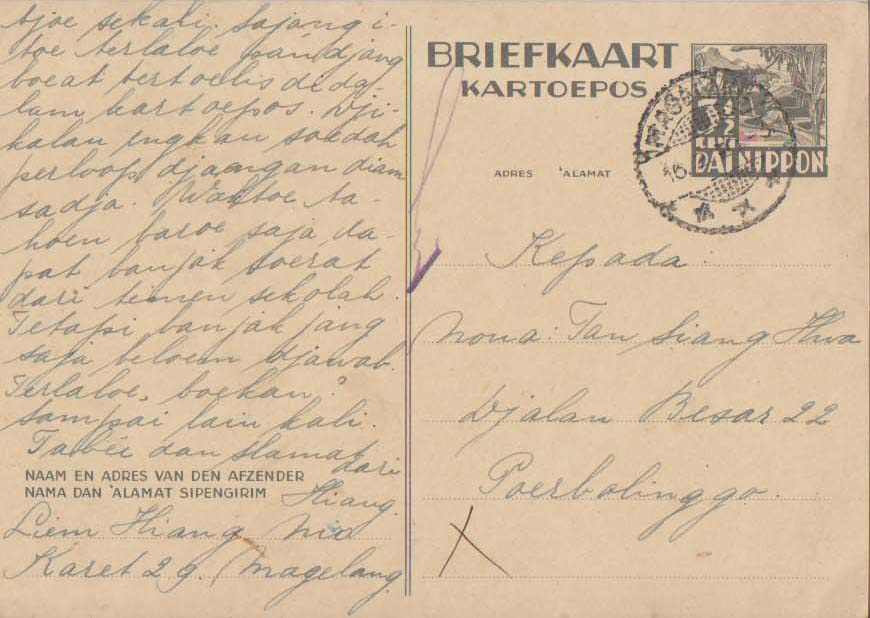 tjoe sekali. Sajang i-
toe terlaloe pandjang
boeat tertoelis dida-
lam kartoepos. Dji-
kalau engkau soedah
perloop, djaangan diam
sadja. Waktoe ta-
hoen baroe saja da-
pat banjak soerat
dari temen sekolah.
Tetapi banjak jang
saja beloem djawab.
Terlaloe, boekan?
Sampai lain kali.
Tabéi dan slamat
dari
Hiang.
NAAM EN ADRES VAN DEN AFZENDER
NAMA DAN 'ALAMAT SIPENGIRIM
Liem Hiang Nio
Karet 29. Magelang.
BRIEFKAART
KARTOEPOS
3½
CENT
DAI NIPPON
MAGELANG
16
ADRES 'ALAMAT
Kepada:
Nona: Tan Siang Hwa
Djalan Besar 22
Poerbolinggo.